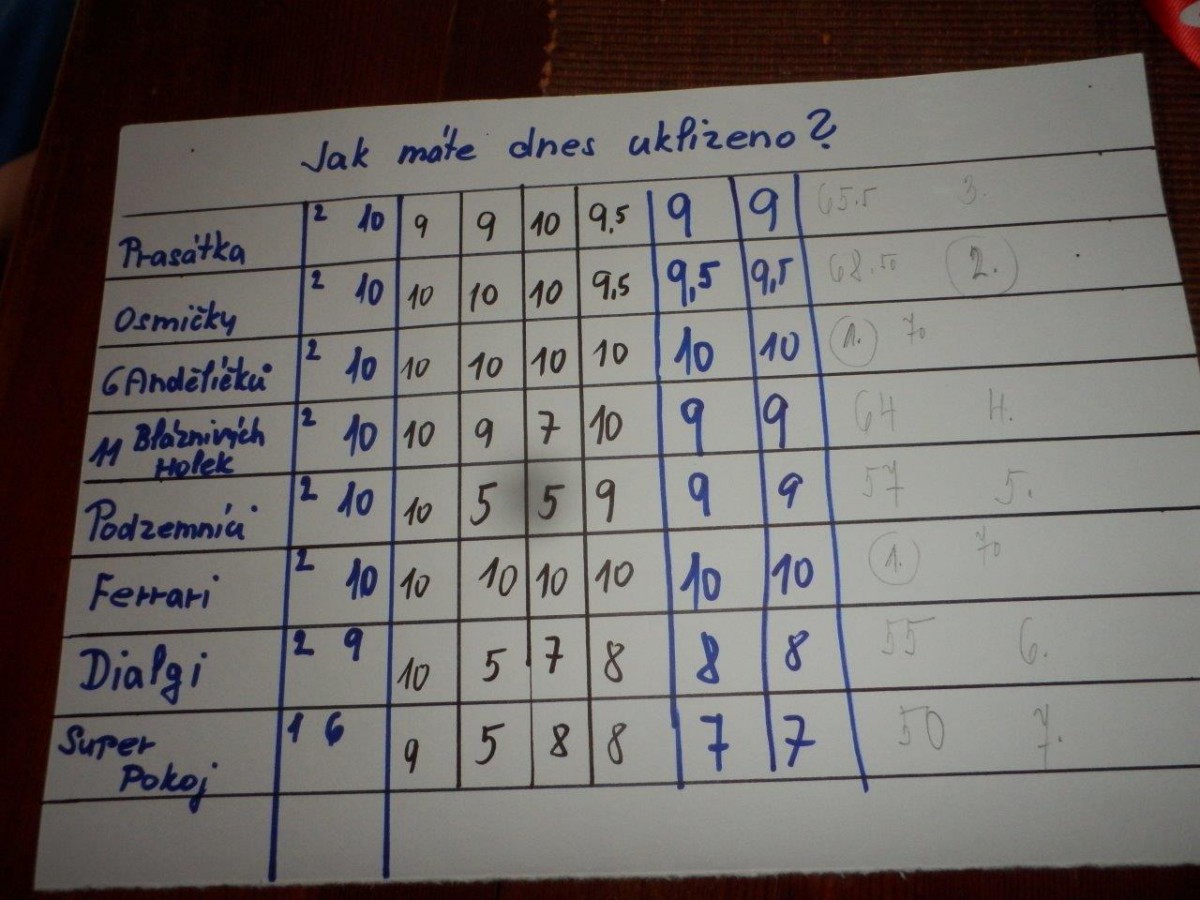 Jak máte dnes uklizeno?
Prasátka 2 10 9 9 10 9,5 9 9 65.5 3.
Osmičky 2 10 10 10 10 9,5 9,5 9,5 68.50 2.
6 Andělíčků 2 10 10 10 10 10 10 10 1. 70
11 Bláznivých 2 10 10 9 7 10 9 9 64 4.
Holek
Podzemníci 2 10 10 5 5 9 9 9 57 5.
Ferrari 2 10 10 10 10 10 10 10 1. 70
Dialgi 2 9 10 5 7 8 8 8 55 6.
Super 1 6 9 5 8 8 7 7 50 7.
Pokoj